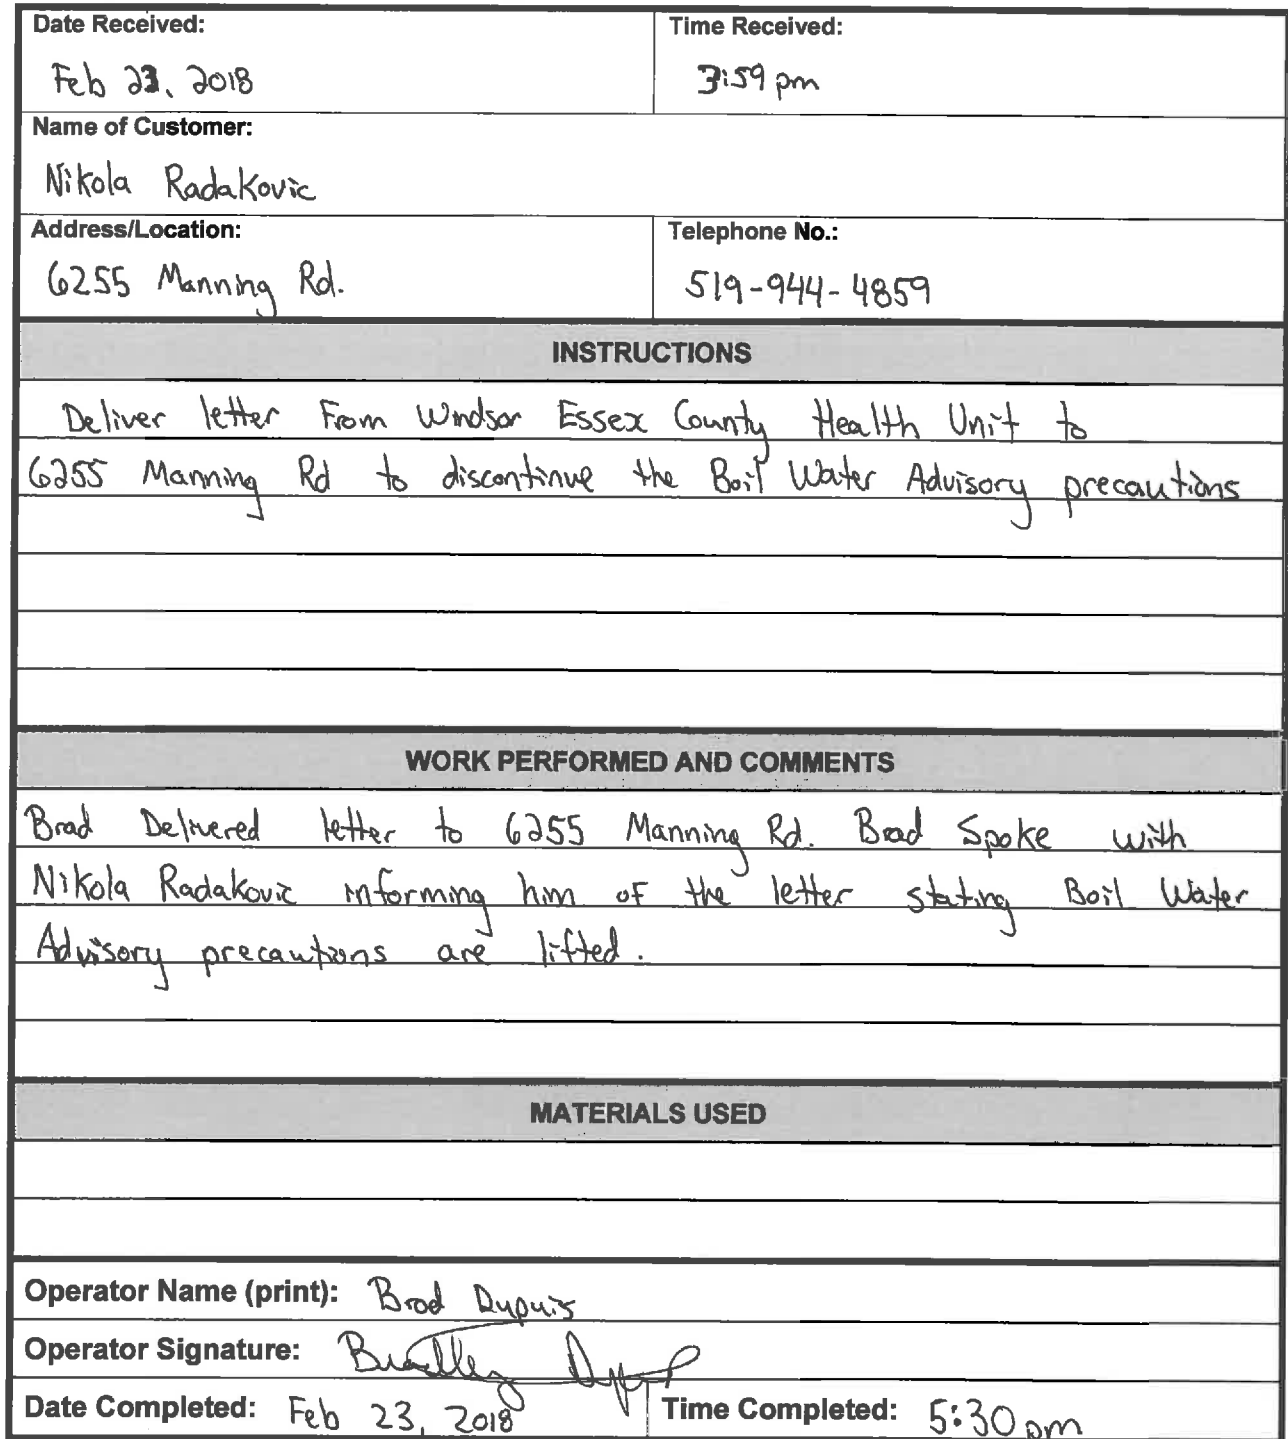 Date Received: Time Received:
Feb 23, 2018 3:59 pm
Name of Customer:
Nikola Radakovic
Address/Location: Telephone No.:
6255 Manning Rd. 519-944-4859
INSTRUCTIONS
Deliver letter From Windsor Essex County Health Unit to
6255 Manning Rd to discontinue the Boil Water Advisory precautions
WORK PERFORMED AND COMMENTS
Brad Delivered letter to 6255 Manning Rd. Brad Spoke with
Nikola Radakovic informing him of the letter stating Boil Water
Advisory precautions are lifted.
MATERIALS USED
Operator Name (print): Brad Dupuis
Operator Signature: Bradley Dupuis
Date Completed: Feb 23, 2018 Time Completed: 5:30 pm